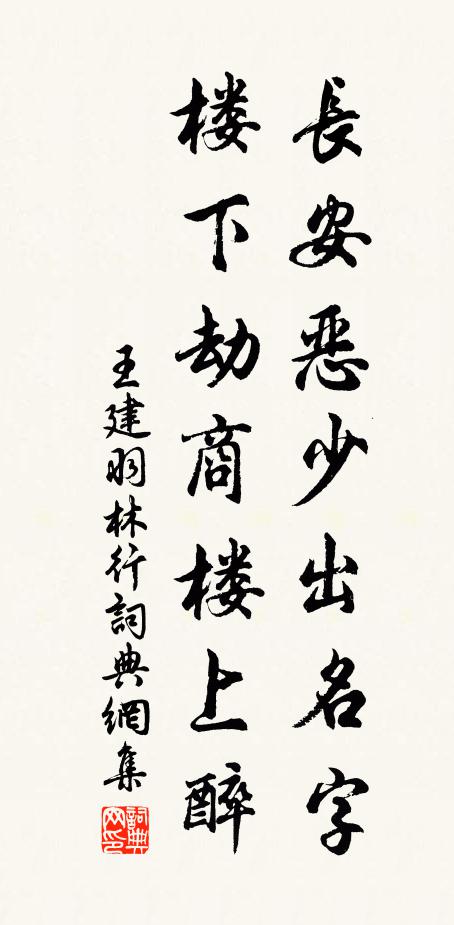 長安恶少出名字
楼下劫商楼上醉
王建羽林行詞典網集
詞典网印